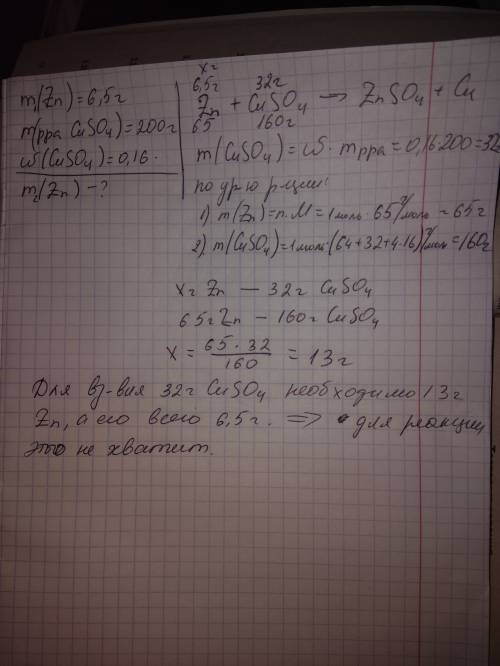 m(Zn) = 6,5г
m(рра CuSO₄) = 200г
ω(CuSO₄) = 0,16.
m₂(Zn) - ?
xг
6,5г 32г
Zn + CuSO₄ → ZnSO₄ + Cu
65 160г
m(CuSO₄) = ω · mрра = 0,16·200 = 32
по ур-ю р-ции:
1) m(Zn) = n·M = 1моль · 65 г/моль = 65г
2) m(CuSO₄) = 1моль·(64+32+4·16) г/моль = 160г
xг Zn — 32г CuSO₄
65г Zn — 160г CuSO₄
x = 65·32 / 160 = 13г
Для вз-вия 32г CuSO₄ необходимо 13г
Zn, а его всего 6,5г. ⟹ для реакции
этого не хватит.